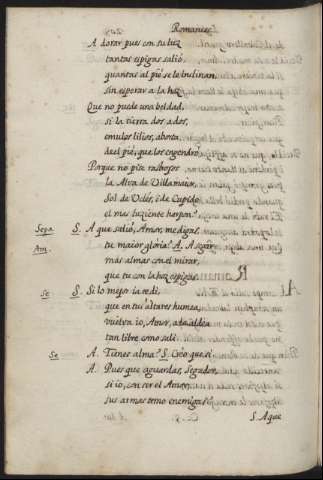 Romances
A dorar pues con tu luz
tantas espigas salió,
quantas al pie se le inclinan,
sin esperar a la hoz.
Que no puede una beldad,
si la tierra dos a dos,
emulos lilios, aborta
de el pie, que los engendrò
Porque no pise rastrojos
la Alva de Villamaior,
Sol de Uclés, i de Cupido
el mas luziente harpon.
Sega. S. A que salió, Amor, me digas
Am. tu maior gloria? A. A segar
más almas con el mirar,
que tu con la hoz espigas.
Se S. Si lo mejor ia te di,
que en tus altares humea,
vuelva io, Amor, a la aldea
tan libre como sali.
Se A. Tienes alma? S. Creo que si.
A. Pues que aguardas, Segador,
si io, con ser el Amor,
sus armas temo enemigas?
S. A que